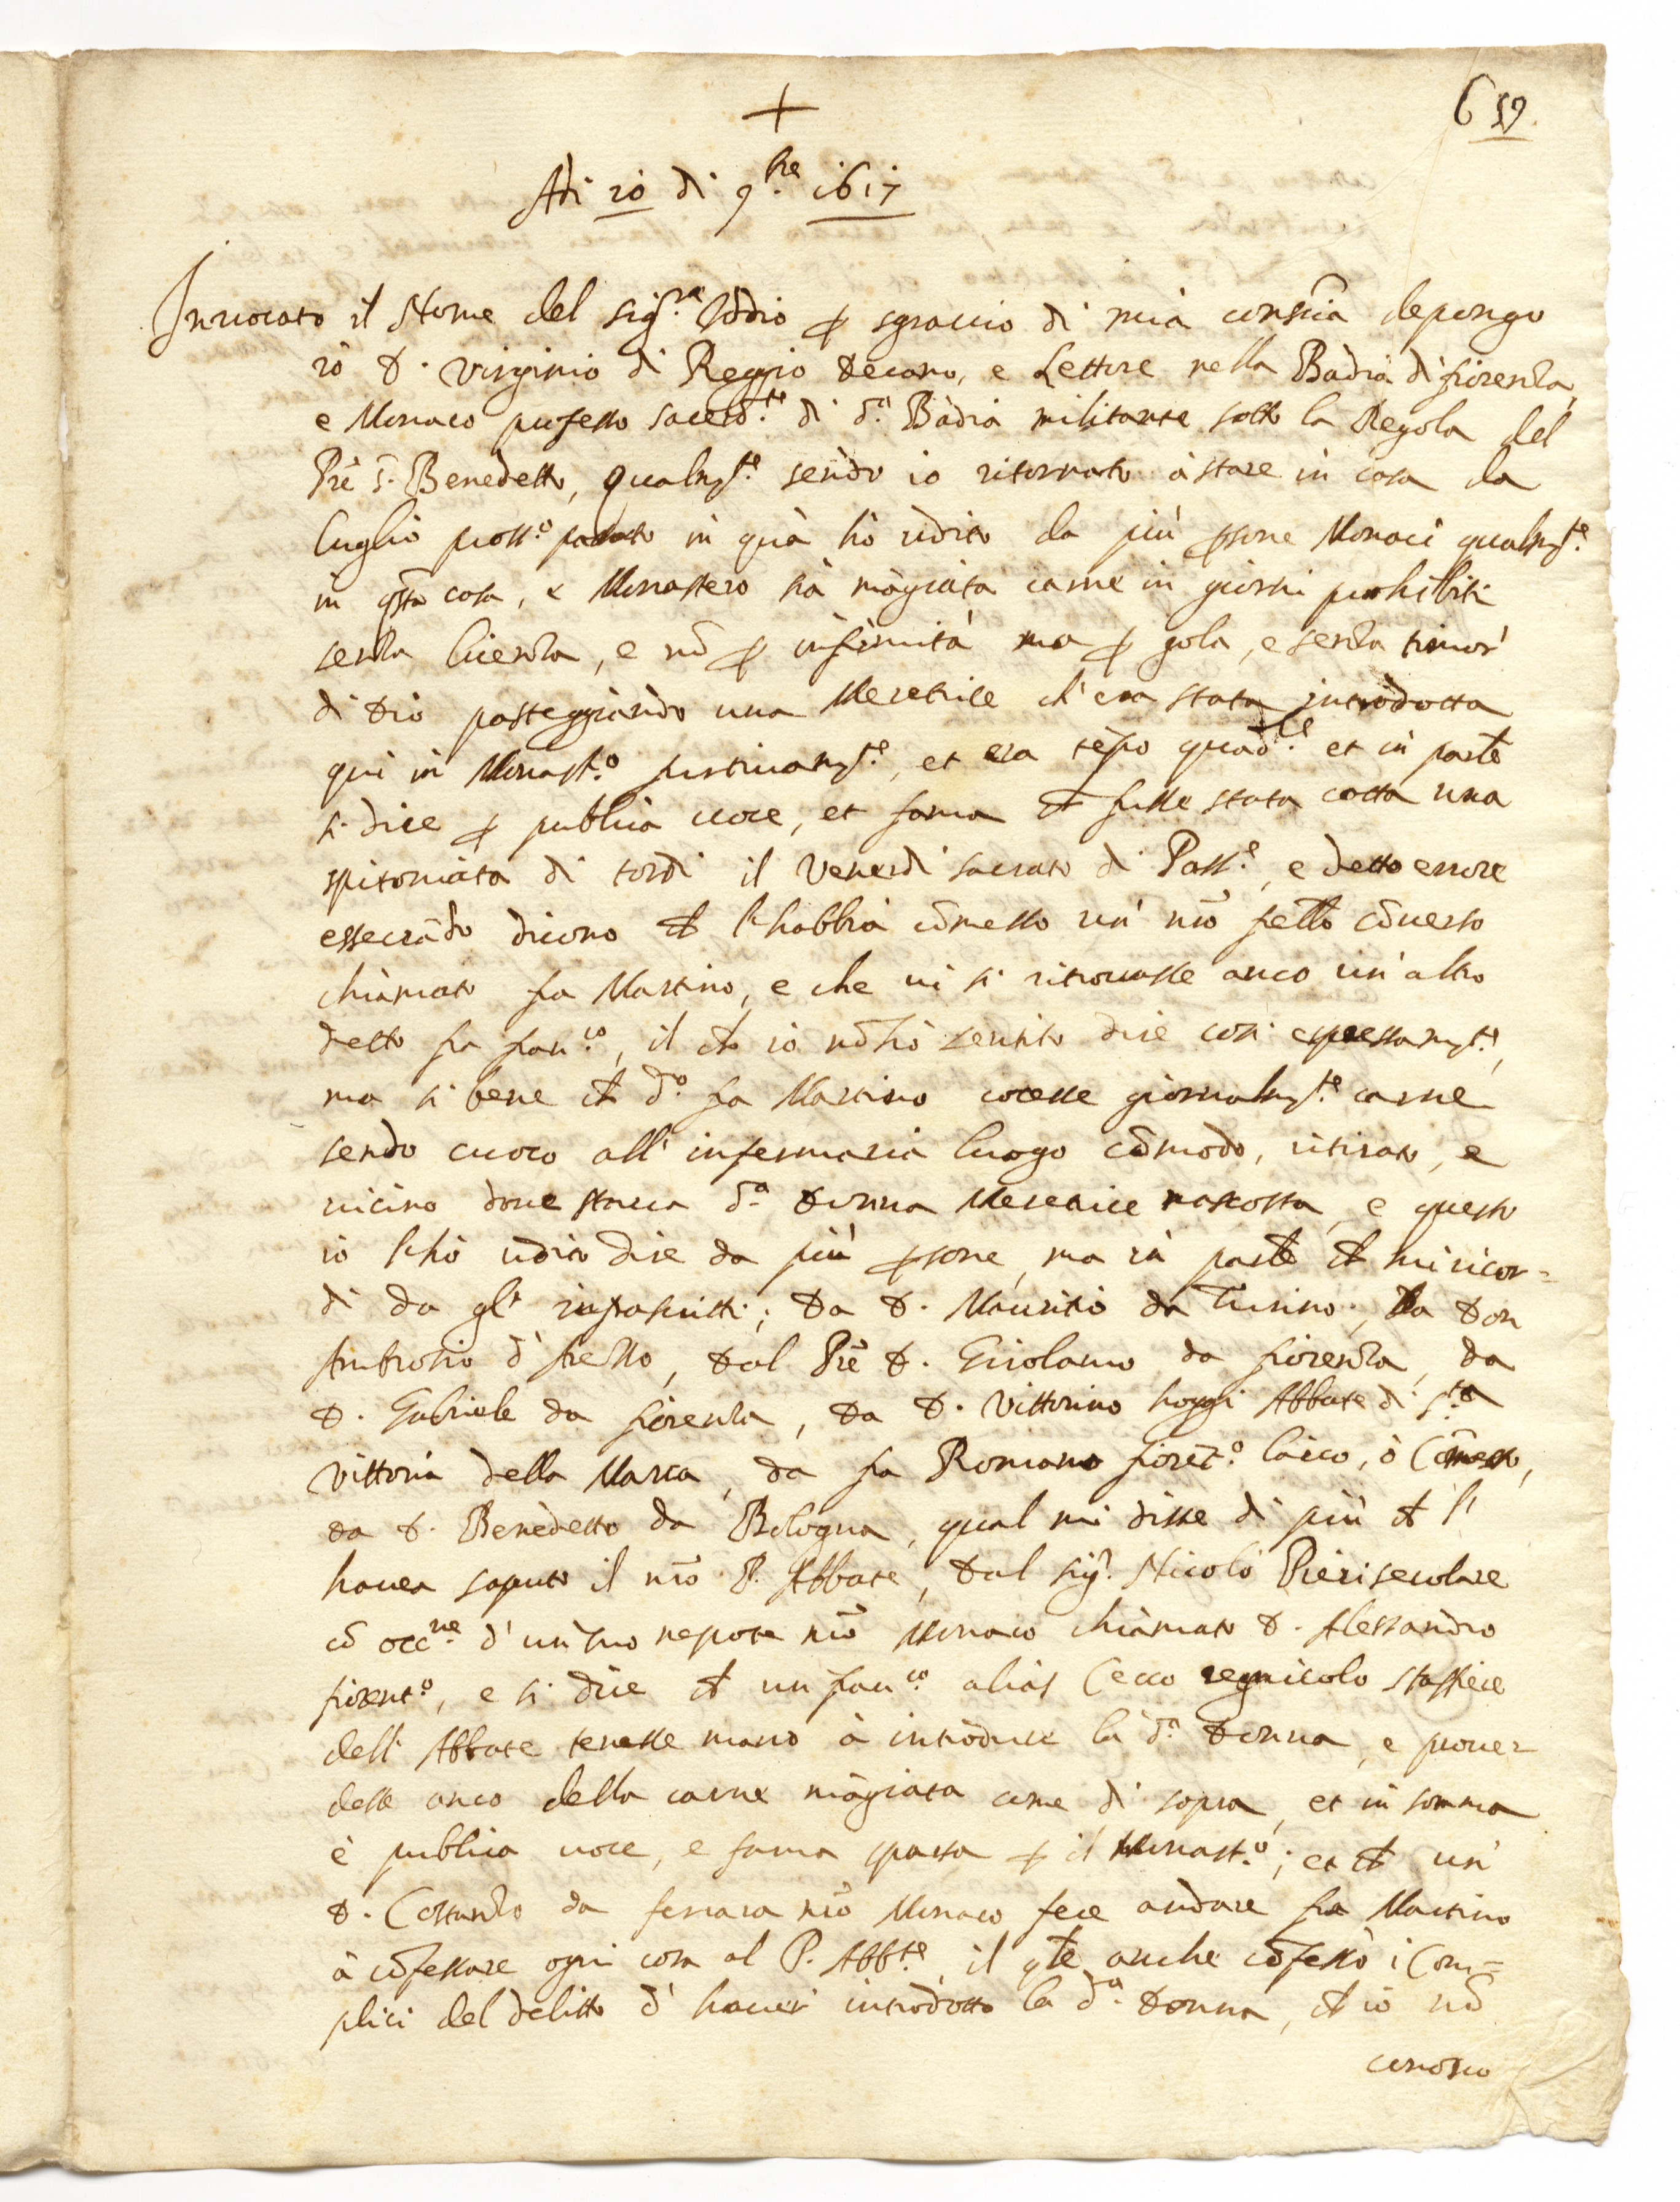 +
659.
Adi 20 di 9.bre 1617
Invocato il Nome del sig.re Iddio p sgravio di mia conscia depongo
io D. Virginio di Reggio Decano, e Lettore nella Badia di fiorenza,
e Monaco professo sacerd.te di d.a Badia militante sotto la Regola del
Prē S. Benedetto, qualm.te sēdo io ritornato à stare in casa da
luglio pross.o passato in quà hò udito da più psone Monaci qualm.te
in q̄sta casa, e Monastero s'hà māgiata carne in giorni prohibiti
senza licenza, e nō p infirmità ma p gola, e senza timor'
di Dio pasteggiādo una Meretrice ch'era stata introdotta
qui in Monast.o furtivam.te, et era tēpo quad.le et in parte
si dice p publica voce, et fama ch fusse stata cotta una
spitonciata di tordi il Venerdi sacrato di Pass.e, e detto errore
essecrādo dicono ch l'habbia cōmesso un' nrō fetto cōverso
chiamato fra Martino, e che vi si ritrovasse anco un'altro
detto fra fran.co, il ch io nō hò sentito dire cosi espressam.te,
ma si bene ch d.o fra Martino cocesse giornalm.te carne
sendo cuoco all'infermaria luogo cōmodo, ritirato, e
vicino dove stava d.a Donna Meretrice nascosta, e questo
io l'hò udito dire da più psone, ma in parte ch mi ricor=
di da gl'infrascritti; Da D. Mauritio da Turino, Da Don
Ambrosio d' Arezzo, Dal Prē D. Girolamo da fiorenza, da
D. Gabriele da fiorenza, Da D. Vittorino hoggi Abbate di s.ta
Vittoria della Marca, da fra Romano fiorēt.o laico, ò Cōmesso,
Da D. Benedetto da Bologna, qual mi disse di più ch l'
haveva saputo il nrō P. Abbate, Dal sig.r Nicolò Pieri secolare
cō occ.ne d' un suo nepote nrō Monaco chiamato D. Alessandro
fiorent.o, e si dice ch un fran.co alias Cecco regnicolo staffiere
dell'Abbate tenesse mano à introdurre la d.a Donna, e prove=
desse anco della carne māgiata come di sopra, et in somma
è publica voce, e fama sparsa p il Monast.o; et ch un'
D. Costanzo da ferrara nrō Monaco fece andare fra Martino
à cōfessare ogni cosa al P. Abb.te, il q̄le anche cōfessò i Com=
plici del delitto d' haver' introdotto la d.a Donna, ch io nō
conosco